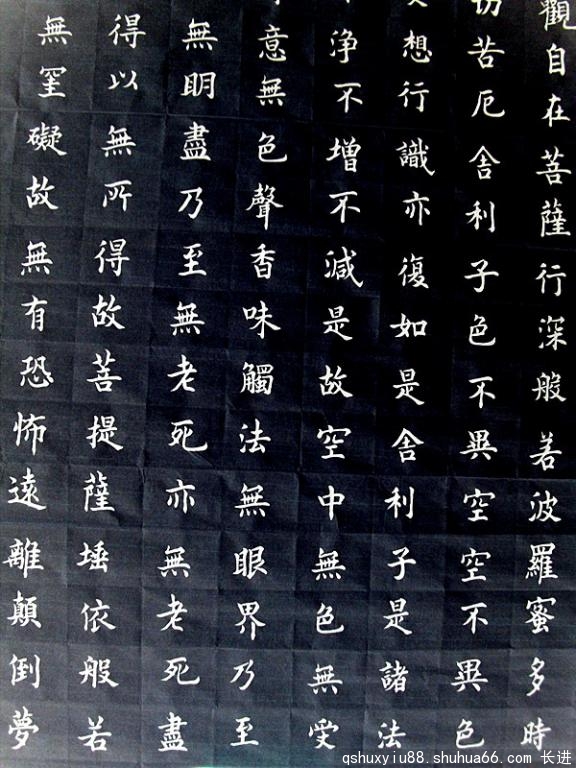 觀自在菩薩行深般若波羅蜜多時
切苦厄舍利子色不異空空不異色
想行識亦復如是舍利子是諸法
淨不增不減是故空中無色無受
意無色聲香味觸法無眼界乃至
無眀盡乃至無老死亦無老死盡
得以無所得故菩提薩埵依般若
無罣礙故無有恐怖遠離顛倒夢
qshuxyiu88.shuhua66.com 长进